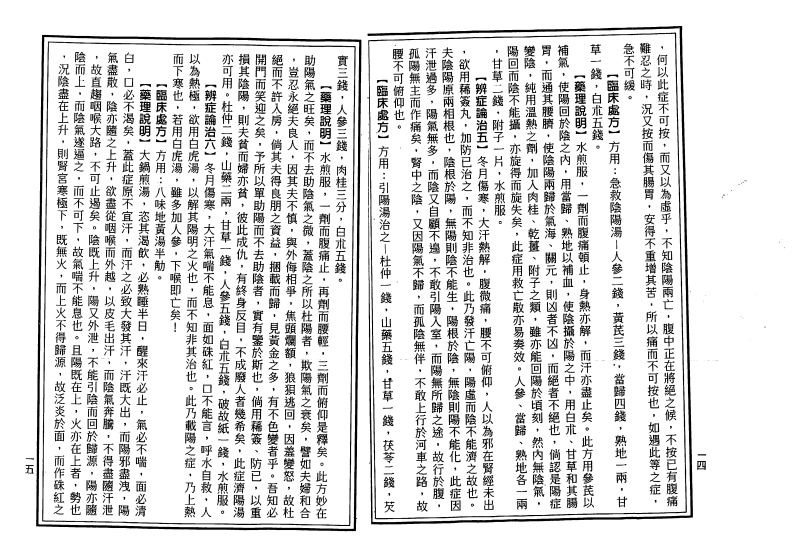 ，何以此症不可按，而又以為虛乎，不知陰陽兩亡，腹中正在將絕之候，不按已有腹痛
難忍之時，況又按而傷其腸胃，安得不重增其苦，所以痛而不可按也，如遇此等之症，
急不可緩。
【臨床處方】方用：急救陰陽湯—人參二錢，黃芪三錢，當歸四錢，熟地一兩，甘
草一錢，白朮五錢。
【藥理說明】水煎服，一劑而腹痛頓止，身熱亦解，而汗亦盡止矣。此方用參芪以
補氣，使陽回於陰之內，用當歸、熟地以補血，使陰攝於陽之中，用白朮、甘草和其腸
胃，而通其腰臍，使陰陽兩歸於氣海、關元，則凶者不凶，而絕者不絕也，倘認是陽症
變陰，純用溫熱之劑，加入肉桂、乾薑、附子之類，雖亦能回陽於頃刻，然內無陰氣，
陽回而陰不能攝，亦旋得而旋失矣，此症用救亡散亦易奏效。人參、當歸、熟地各一兩
，甘草二錢，附子一片，水煎服。
【辨症論治五】冬月傷寒，大汗熱解，腹微痛，腰不可俯仰，人以為邪在腎經未出
，欲用豨薟丸，加防已治之，而不知非治也。此乃發汗亡陽，陽虛而陰不能濟之故也。
夫陰陽原兩相根也，陰根於陽，無陽則陰不能生，陽根於陰，無陰則陽不能化，此症因
汗泄過多，陽氣無多，而陰又自顧不遑，不敢引陽入室，而陽無所歸之途，故行於腹，
孤陽無主而作痛矣，腎中之陰，又因陽氣不歸，而孤陰無伴，不敢上行於河車之路，故
腰不可俯仰也。
【臨床處方】方用：引陽湯治之—杜仲一錢，山藥五錢，甘草一錢，茯苓二錢，芡
一四
實三錢，人參三錢，肉桂三分，白朮五錢。
【藥理說明】水煎服，一劑而腹痛止，再劑而腰輕，三劑而俯仰是釋矣。此方妙在
助陽氣之旺矣，而不去助陰氣之微，蓋陰之所以杜陽者，欺陽氣之衰矣，譬如夫婦和合
，豈忍永絕夫良人，因其夫不慎，與外侮相爭，焦頭爛額，狼狽逃回，因羞變怒，故杜
絕而不許入房，倘其夫得良朋之資益，捆載而歸，見黃金之多，有不色變者乎。吾知必
開門而笑迎之矣，予所以單助陽而不去助陰者，實有鑒於斯也，倘用豨薟、防已，以重
損其陰陽，則夫貧而婦亦貧，彼此成仇，有終身反目，不成廢人者幾希矣，此症濟陽湯
亦可用。杜仲二錢，山藥一兩，甘草一錢，人參五錢，白朮五錢，破故紙一錢，水煎服。
【辨症論治六】冬月傷寒，大汗氣喘不能息，面如硃紅，口不能言，呼水自救，人
以為熱極，欲用白虎湯，以解其陽明之火也，而不知非其治也。此乃載陽之症，乃上熱
而下寒也，若用白虎湯，雖多加人參，下喉即亡矣！
【臨床處方】方用：八味地黃湯半觔。
【藥理說明】大鍋煎湯，恣其渴飲，必熟睡半日，醒來汗必止，氣必不喘，面必清
白，口必不渴矣，蓋此症原不宜汗，而汗之必致大發其汗，汗既大出，而陽邪盡洩，陽
氣盡散，陰亦隨之上升，欲盡從咽喉而外越，以皮毛出汗，而陰氣奔騰，不得盡隨汗泄
，故直趨咽喉大路，不可止遏矣。陰既上升，陽又外泄，不能引陰而回於歸源，陽亦隨
陰而上，而陰氣遂逼之，而不可下，故氣喘不能息也。且陽既在上，火亦在上者，勢也
，況陰盡在上升，則腎宮寒極下，既無火，而上火不得歸源，故泛炎於面，而作硃紅之
一五